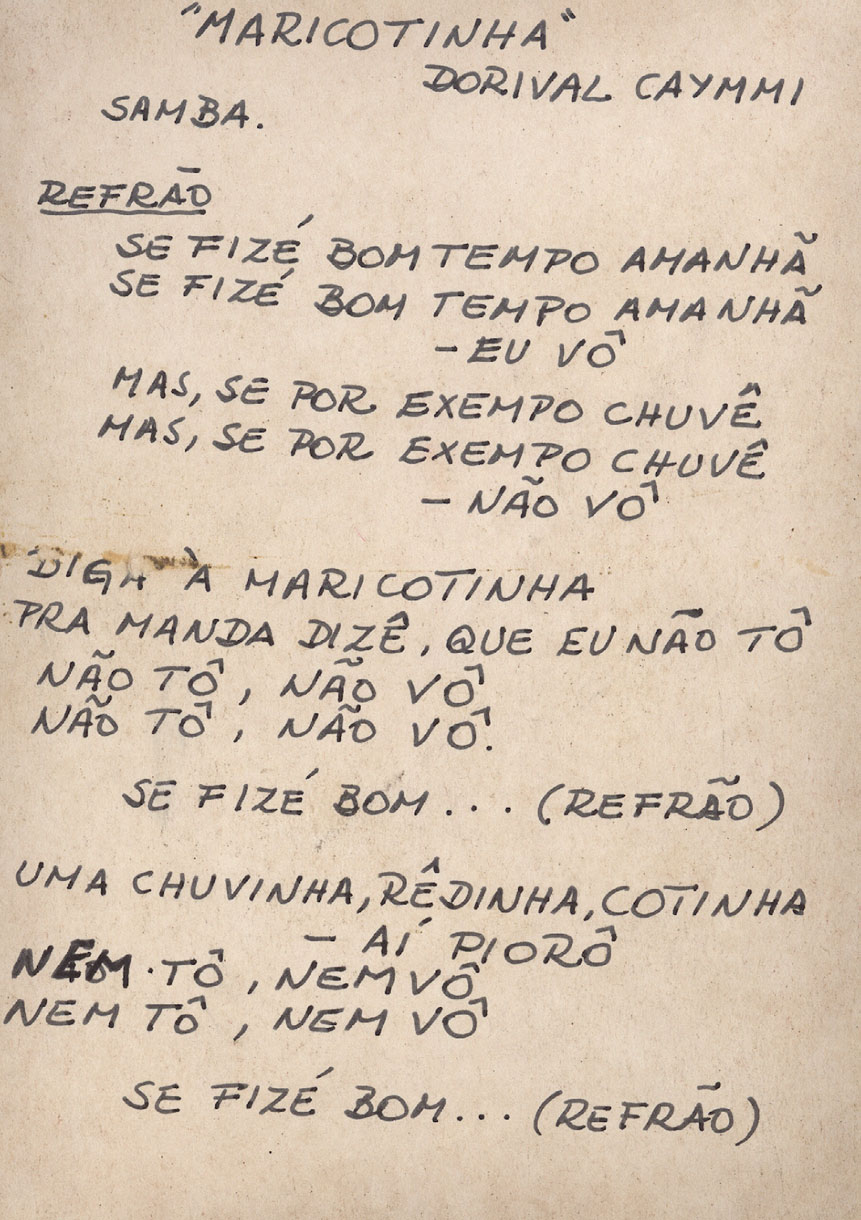 "MARICOTINHA"
DORIVAL CAYMMI
SAMBA.
REFRÃO
SE FIZÉ BOM TEMPO AMANHÃ
SE FIZÉ BOM TEMPO AMANHÃ
- EU VÔ
MAS, SE POR EXEMPO CHUVÊ
MAS, SE POR EXEMPO CHUVÊ
- NÃO VÔ
DIGA À MARICOTINHA
PRA MANDA DIZÊ, QUE EU NÃO TÔ
NÃO TÔ, NÃO VÔ
NÃO TÔ, NÃO VÔ.
SE FIZÉ BOM... (REFRÃO)
UMA CHUVINHA, RÊDINHA, COTINHA
- AÍ PIORÔ
NEM TÔ, NEM VÔ
NEM TÔ, NEM VÔ
SE FIZÉ BOM... (REFRÃO)